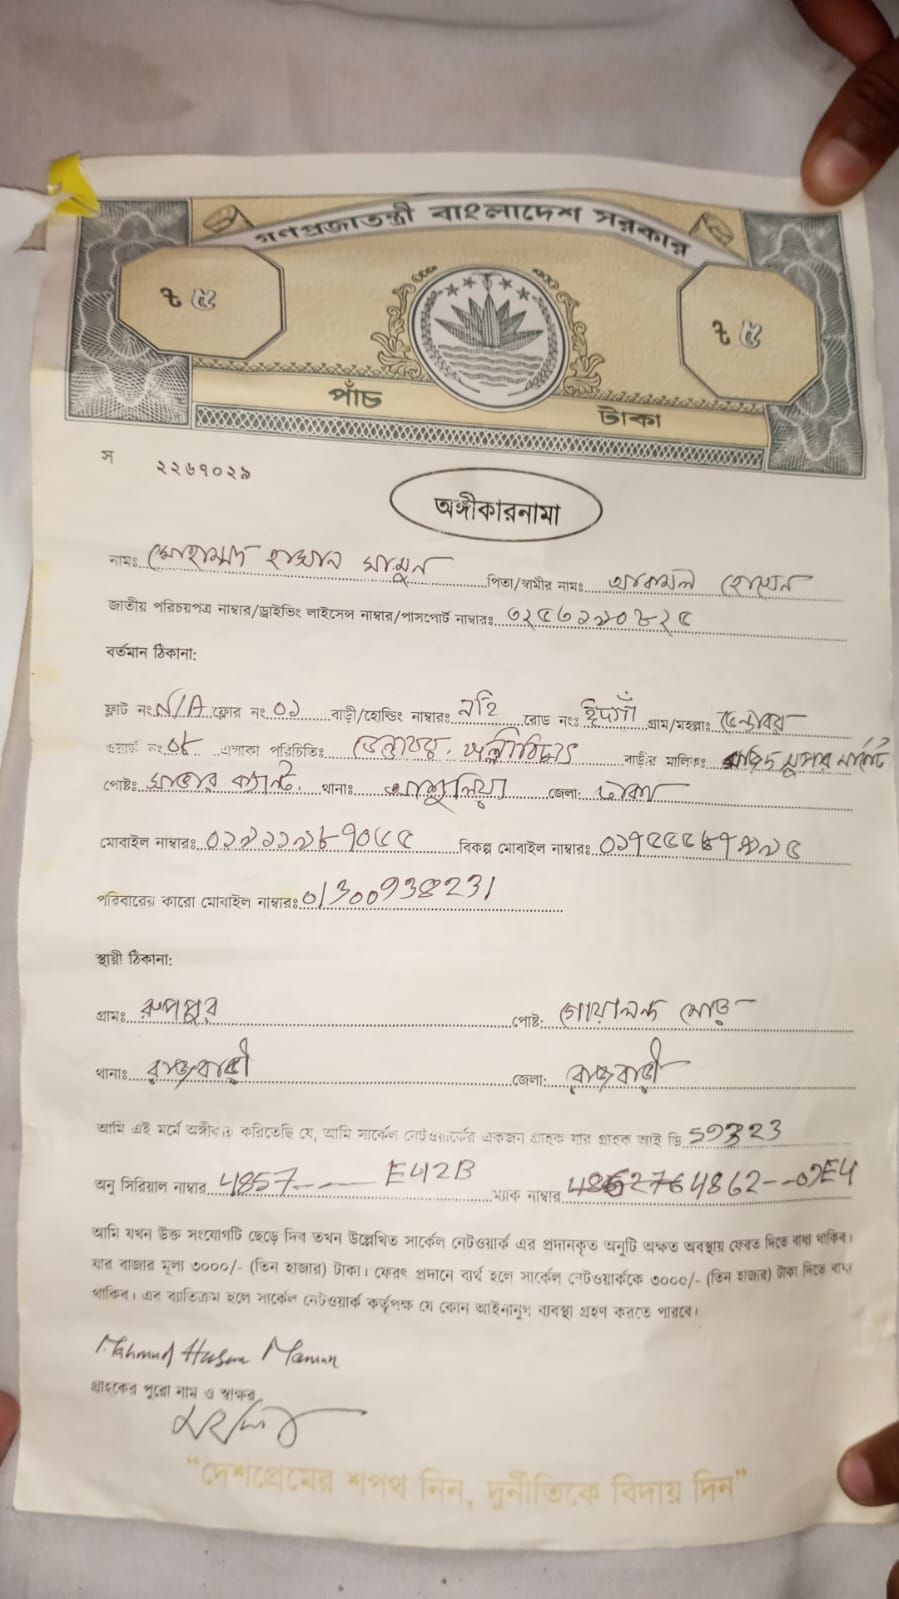 গণপ্রজাতন্ত্রী বাংলাদেশ সরকার
৳ ৫ ৳ ৫
পাঁচ টাকা
স ২২৬৭০২৯
অঙ্গীকারনামা
নামঃ মোহাম্মদ হাসান মামুন পিতা/স্বামীর নাম: হোসেন
জাতীয় পরিচয়পত্র নাম্বার/ড্রাইভিং লাইসেন্স নাম্বার/পাসপোর্ট নাম্বারঃ
বর্তমান ঠিকানা:
ফ্লাট নং N/A ফ্লোর নং ০১ বাড়ী/হোল্ডিং নাম্বারঃ রোড নং: গ্রাম/মহল্লাঃ
ওয়ার্ড নং ০৮ এলাকা পরিচিতিঃ পল্লীবিদ্যুৎ বাড়ীর মালিকঃ
পোষ্টঃ সাভার ক্যান্ট. থানাঃ আশুলিয়া জেলা: ঢাকা
মোবাইল নাম্বারঃ ০১৯১১৯৮৭০৫৫ বিকল্প মোবাইল নাম্বারঃ
পরিবারের কারো মোবাইল নাম্বারঃ 01300938231
স্থায়ী ঠিকানা:
গ্রামঃ রুপপুর পোষ্ট: গোয়ালন্দ মোড়
থানাঃ রাজবাড়ী জেলা: রাজবাড়ী
আমি এই মর্মে অঙ্গীকার করিতেছি যে, আমি সার্কেল নেটওয়ার্কের একজন গ্রাহক যার গ্রাহক আই ডি 59323
অনু সিরিয়াল নাম্বার 4857---- E42B ম্যাক নাম্বার
আমি যখন উক্ত সংযোগটি ছেড়ে দিব তখন উল্লেখিত সার্কেল নেটওয়ার্ক এর প্রদানকৃত অনুটি অক্ষত অবস্থায় ফেরত দিতে বাধ্য থাকিব।
যার বাজার মূল্য ৩০০০/- (তিন হাজার) টাকা। ফেরৎ প্রদানে ব্যর্থ হলে সার্কেল নেটওয়ার্ককে ৩০০০/- (তিন হাজার) টাকা দিতে বাধ্য
থাকিব। এর ব্যতিক্রম হলে সার্কেল নেটওয়ার্ক কর্তৃপক্ষ যে কোন আইনানুগ ব্যবস্থা গ্রহণ করতে পারবে।
Mahmud Hasan Mamun
গ্রাহকের পুরো নাম ও স্বাক্ষর
"দেশপ্রেমের শপথ নিন, দুর্নীতিকে বিদায় দিন"